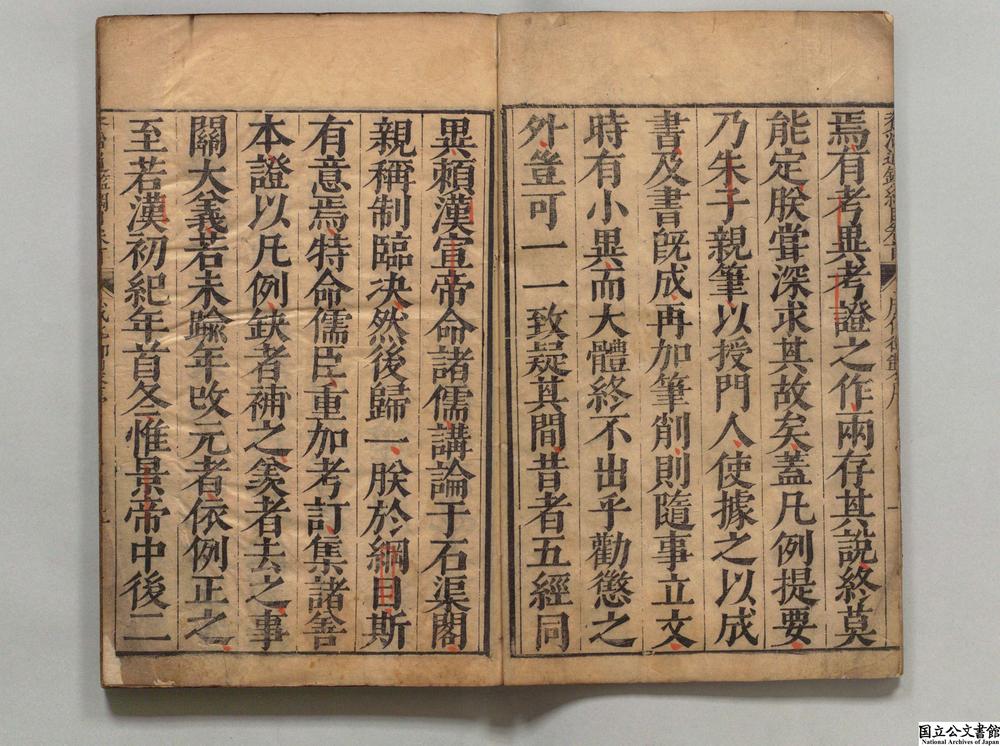 焉有考異考證之作兩存其說終莫
能定朕嘗深求其故矣蓋凡例提要
乃朱子親筆以授門人使據之以成
書及書旣成再加筆削則隨事立文
時有小異而大體終不出乎勸懲之
外豈可一一致疑其間昔者五經同
異賴漢宣帝命諸儒講論于石渠閣
親稱制臨决然後歸一朕於綱目斯
有意焉特命儒臣重加考訂集諸善
本證以凡例缺者補之羨者去之事
關大義若未踰年改元者依例正之
至若漢初紀年首冬惟景帝中後二
国立公文書館
National Archives of Japan